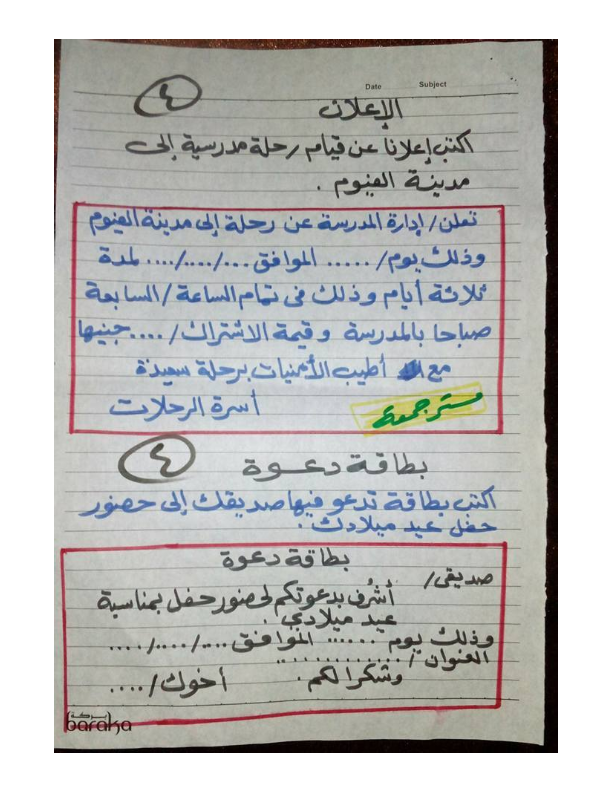 Date Subject
٤
الإعلان
اكتب إعلانا عن قيام رحلة مدرسية إلى
مدينة الفيوم .
تعلن / إدارة المدرسة عن رحلة إلى مدينة الفيوم
وذلك يوم / ..... الموافق .../..../.... لمدة
ثلاثة أيام وذلك فى تمام الساعة / السابعة
صباحا بالمدرسة وقيمة الاشتراك / .... جنيها
مع أطيب الأمنيات برحلة سعيدة
أسرة الرحلات
مستر جمعة
٤
بطاقة دعـوة
اكتب بطاقة تدعو فيها صديقك إلى حضور
حفل عيد ميلادك .
بطاقة دعوة
صديقى /
أشرُف بدعوتكم لحضور حفل بمناسبة
عيد ميلادي .
وذلك يوم ...... الموافق ..../..../....
العنوان / ............
وشكرا لكم . أخوك / ....
بركة
baraka